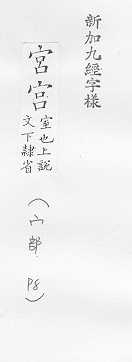 新加九經字樣
宮宫室也上說
文下隷省
(宀部 P8)